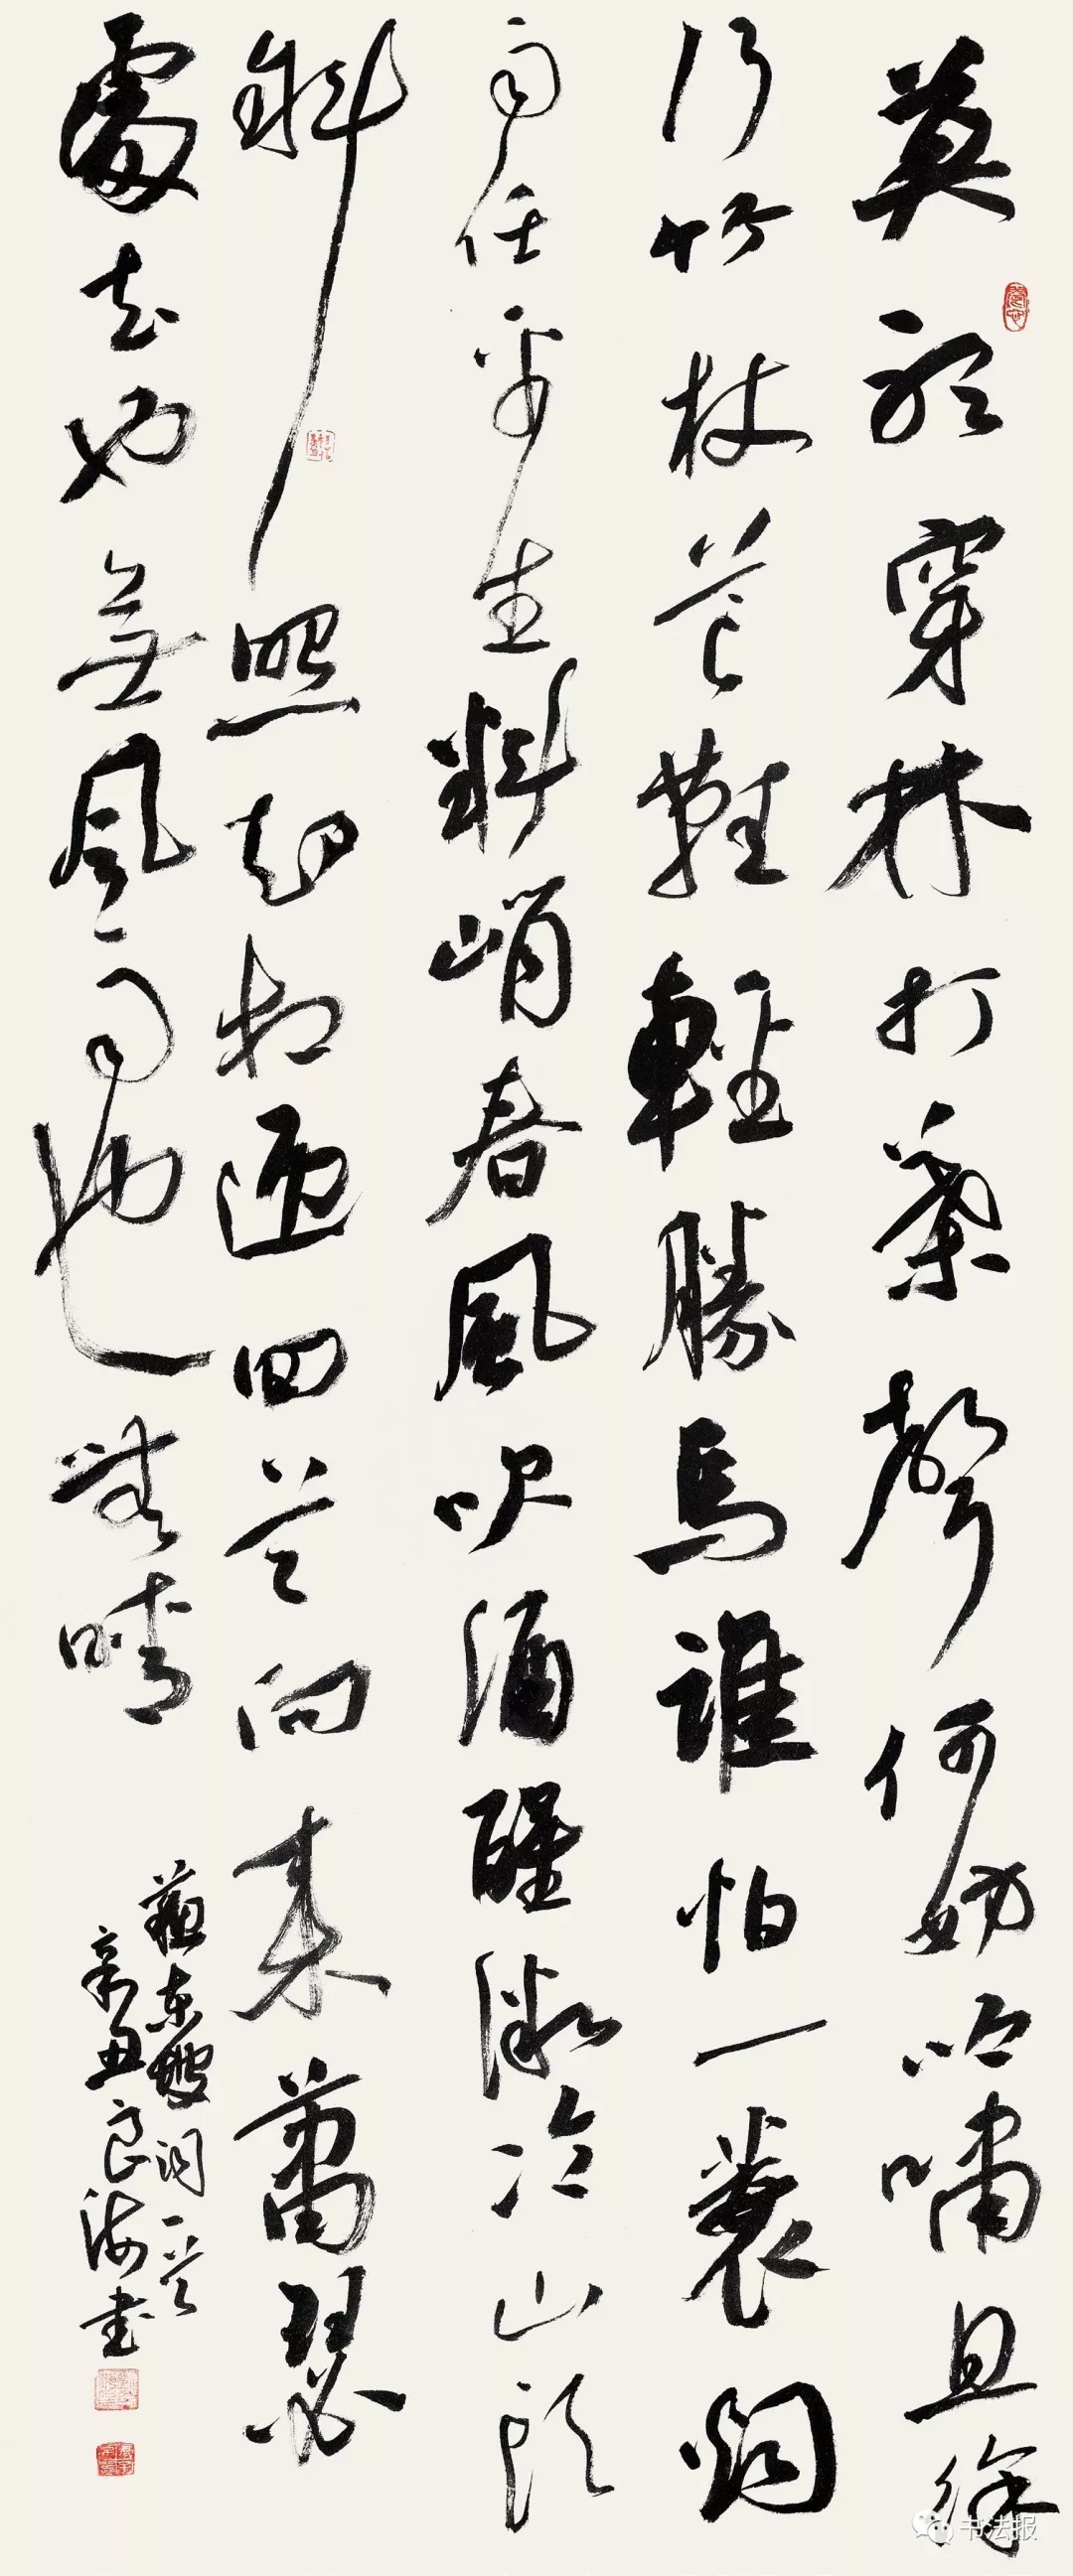 莫聽穿林打葉聲何妨吟嘯且徐
行竹杖芒鞋輕勝馬誰怕一蓑烟
雨任平生料峭春風吹酒醒微冷山頭
斜照却相迎回首向來蕭瑟
處去也無風雨也無晴
蘇東坡詞一首
辛丑良海書
书法报